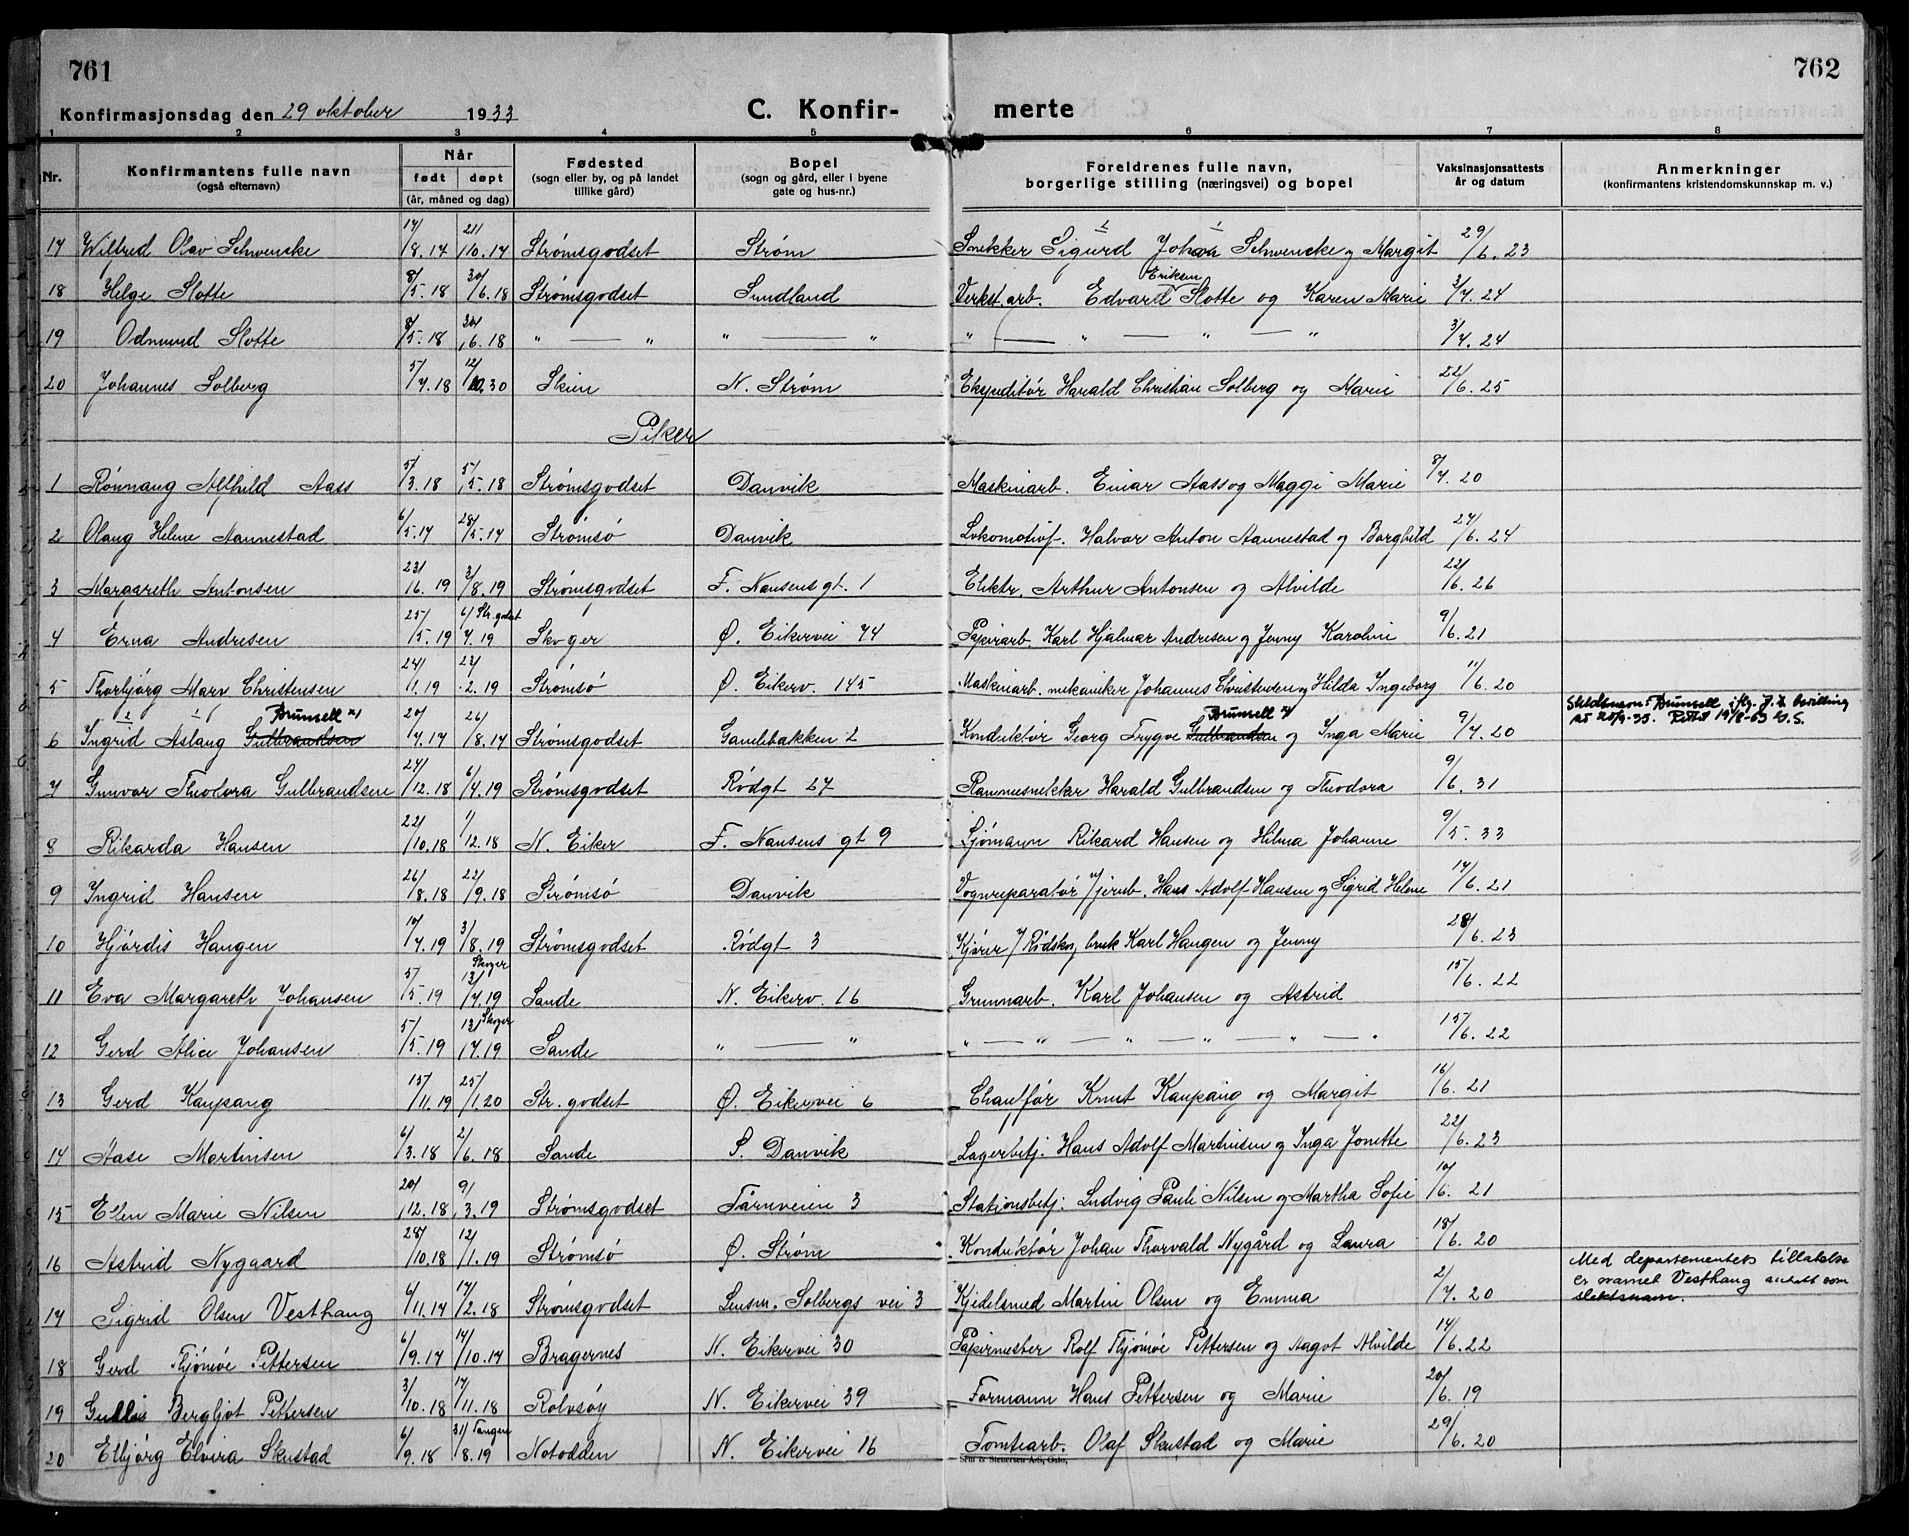 761
762
Konfirmasjonsdag den 29 oktober 1933
C. Konfir-
merte
1 2 3 4 5 6 7 8
Nr.
Konfirmantens fulle navn
(også efternavn)
Når
født døpt
(år, måned og dag)
Fødested
(sogn eller by, og på landet
tillike gård)
Bopel
(sogn og gård, eller i byene
gate og hus-nr.)
Foreldrenes fulle navn,
borgerlige stilling (næringsvei) og bopel
Vaksinasjonsattests
år og datum
Anmerkninger
(konfirmantens kristendomskunnskap m. v.)
17 Wilfred Olav Schwenske 17/8.17 21/10.17 Strømsgodset Strøm Snekker Sigurd Johan Schwenske og Margit 29/6.23
18 Helge Slotte 8/5.18 30/6.18 Strømsgodset Sundland Verkst.arb. Edvard Eriksen Slotte og Karen Marie 3/7.24
19 Odmund Slotte 8/5.18 30/6.18 " — " " — " " — " — " — " 3/7.24
20 Johannes Solberg 5/7.18 12/10.30 Skien N. Strøm Ekspeditør Harald Christian Solberg og Marie 22/6.25
Piker
1 Rønnaug Alfhild Aass 5/3.18 5/5.18 Strømsgodset Danvik Maskinarb. Einar Aass og Maggi Marie 8/7.20
2 Olaug Helene Aannestad 6/5.17 28/5.17 Strømsø Danvik Lokomotivf. Halvar Anton Aannestad og Borghild 27/6.24
3 Margareth Antonsen 23/6.19 3/8.19 Strømsgodset F. Nansens gt. 1 Elektr. Arthur Antonsen og Alvilde 22/6.26
4 Erna Andresen 25/5.19 6/7.19 Str.godset Skoger Ø. Eikervei 74 Papirarb. Karl Hjalmar Andresen og Jenny Karoline 9/6.21
5 Thorbjørg Mary Christensen 24/1.19 23/2.19 Strømsø Ø. Eikerv. 145 Maskinarb. mekaniker Johannes Christensen og Hilda Ingeborg 11/6.20
6 Ingrid Aslaug Gulbrandsen Brunsell x) 20/7.17 26/8.17 Strømsgodset Gamlebakken 2 Konduktør Georg Trygve Gulbrandsen Brunsell x) og Inga Marie 9/7.20 Slektsnavn: Brunsell iflg. J.d. bevilling
av 20/9-35. Rettet 19/8-63 G.S.
7 Gunvor Theodora Gulbrandsen 27/12.18 6/4.19 Strømsgodset Rødgt 27 Rammesnekker Harald Gulbrandsen og Theodora 9/6.31
8 Rikarda Hansen 22/10.18 1/12.18 N. Eiker F. Nansens gt 9 Sjømann Rikard Hansen og Hilma Johanne 9/5.33
9 Ingrid Hansen 26/8.18 22/9.18 Strømsø Danvik Vognreparatør v/jernb. Hans Adolf Hansen og Sigrid Helene 17/6.21
10 Hjørdis Haugen 10/7.19 3/8.19 Strømsgodset Rødgt 3 Kjører v/ Rødskog bruk Karl Haugen og Jenny 28/6.23
11 Eva Margareth Johansen 5/5.19 13/7.19 Skoger Sande N. Eikerv. 16 Grunnarb. Karl Johansen og Astrid 15/6.22
12 Gerd Alice Johansen 5/5.19 13/7.19 Skoger Sande " — " " — " — " — " — " — " 15/6.22
13 Gerd Kaupang 15/11.19 25/1.20 Str.godset Ø. Eikervei 6 Chauffør Knut Kaupang og Margit 16/6.21
14 Aase Martinsen 6/3.18 2/6.18 Sande S. Danvik Lagerbetj. Hans Adolf Martinsen og Inga Jonette 22/6.23
15 Ellen Marie Nilsen 20/12.18 9/3.19 Strømsgodset Tårnveien 3 Stationsbetj. Ludvig Pauli Nilsen og Martha Sofie 10/6.21
16 Astrid Nygaard 28/10.18 12/1.19 Strømsø Ø. Strøm Konduktør Johan Thorvald Nygård og Laura 18/6.20
17 Sigrid Olsen Vesthaug 6/11.17 17/2.18 Strømsgodset Lensm. Solbergs vei 3 Kjedelsmed Martin Olsen og Emma 2/7.20 Med departementets tillatelse
er navnet Vesthaug antatt som
slektsnavn.
18 Gerd Thjømøe Pettersen 6/9.17 14/10.17 Bragernes N. Eikervei 30 Papirmester Rolf Thjømøe Pettersen og Aagot Alvilde 14/6.22
19 Gudlis Bergljot Pettersen 3/10.18 17/11.18 Rolvsøy N. Eikervei 39 Formann Hans Pettersen og Marie 20/6.19
20 Elbjørg Elvira Skustad 6/9.18 31/8.19 Tangen Notodden N. Eikervei 16 Tomtearb. Olaf Skustad og Marie 29/6.20
Sem & Stenersen A/S, Oslo.